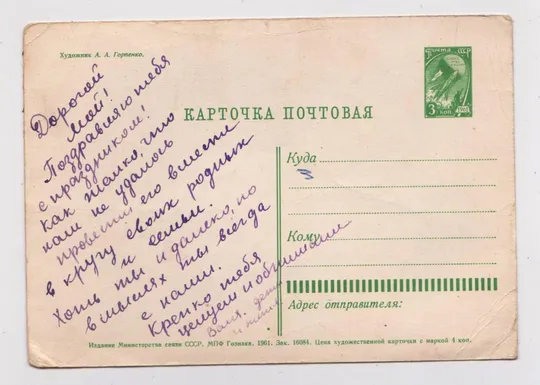 Художник А. А. Горпенко.
ПОЧТА СССР
3 КОП. 1961
КАРТОЧКА ПОЧТОВАЯ
Дорогой
мой!
Поздравляю тебя
с праздником!
Как жалко, что
нам не удалось
провести его вместе
в кругу своих родных
и семьи.
Хоть ты и далеко, но
в мыслях ты всегда
с нами.
Крепко тебя
целуем и обнимаем
Валя, дети
и
Куда
Кому
Адрес отправителя:
Издание Министерства связи СССР. МПФ Гознака. 1961. Зак. 16084. Цена художественной карточки с маркой 4 коп.